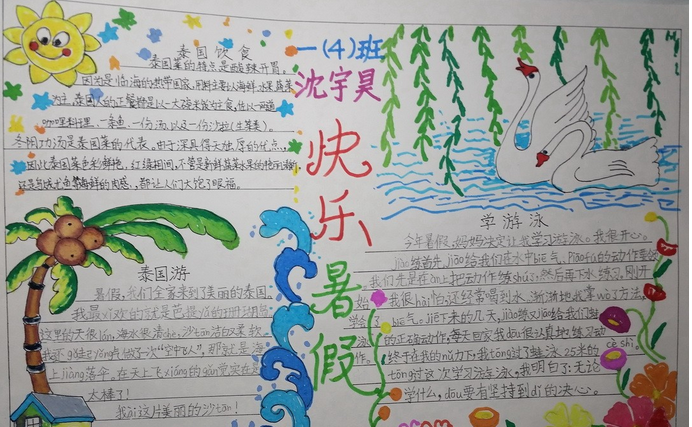 泰国饮食
泰国菜的特点是酸辣开胃。
因为是临海的热带国家,用料主要以海鲜、水果、蔬菜
为主。泰国人的正餐都是以一大碗米饭为主食,佐以一道
咖喱料理、一条鱼、一份汤,以及一份沙拉(生菜类)。
冬阴功汤是泰国菜的代表。由于深具得天独厚的优点,
因此泰国菜色彩鲜艳,红绿相间,不管是新鲜蔬菜水果的艳丽清晰
还是鱼海鲜的肉感,都让人们大饱了眼福。
一(4)班
沈宇昊
快乐暑假
泰国游
暑假,我们全家来到了美丽的泰国。
我最xǐ欢的就是芭提yǎ的珊瑚岛
这里的天很lán,海水很清chè,沙tān洁白又柔软。
我还yǒng敢的做了一次“空中飞人”,那就是海
上jiàng落伞。在天上飞xiáng的gǎn觉实在是
太棒了!
我ài这片美丽的沙tān!
学游泳
今年暑假,妈妈决定让我学习游泳。我很开心。
liàn前,jiào给我们在水中biē气,
我们先是在àn上把动作练shú,然后再下水练习。刚开
始,我很hài怕,还经常喝到水,渐渐地我掌wò了方法,
学会了biē气。jiē下来的几天,jiào练又jiāo给我们蛙
泳的正确动作,每天回家我dōu很认真地练习动
作。终于在我的nǔ力下,我tōng过了蛙泳25米的
cè shì。
tōng过这次学习游泳,我明白了:无论
学什么,dōu要有坚持到dǐ的决心。